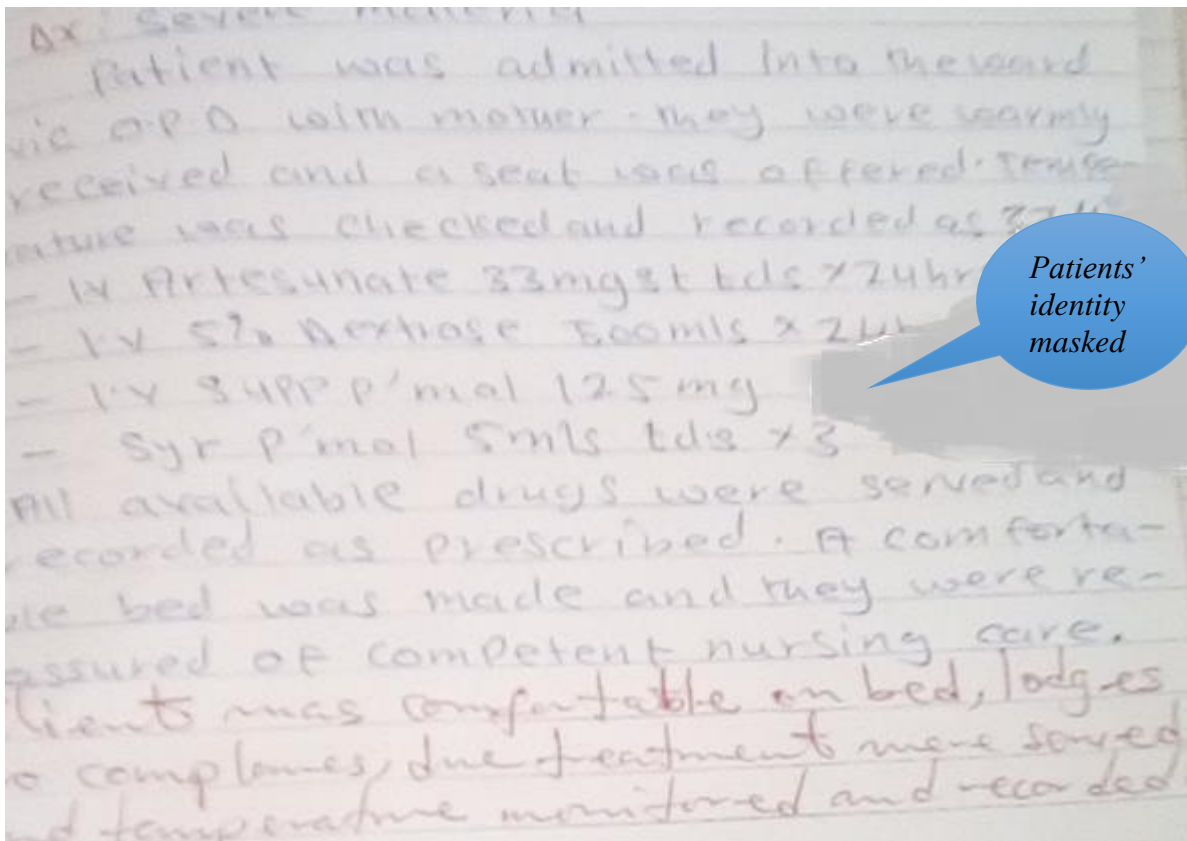 Δx: Severe malaria
Patient was admitted into the ward
via O.P.D with mother. They were warmly
received and a seat was offered. Tempe-
rature was checked and recorded as
- IV Artesunate 33mg st tds x 24hr
- I.V 5% Dextrose 500mls x 24h
- I.V Supp P'mol 125 mg
- Syr P'mol 5mls tds x 3
All available drugs were served and
recorded as prescribed. A comforta-
ble bed was made and they were re-
assured of competent nursing care.
lients was comfortable on bed, lodges
o complaines, due treatment were served
nd temperature monitored and recorded
Patients'
identity
masked